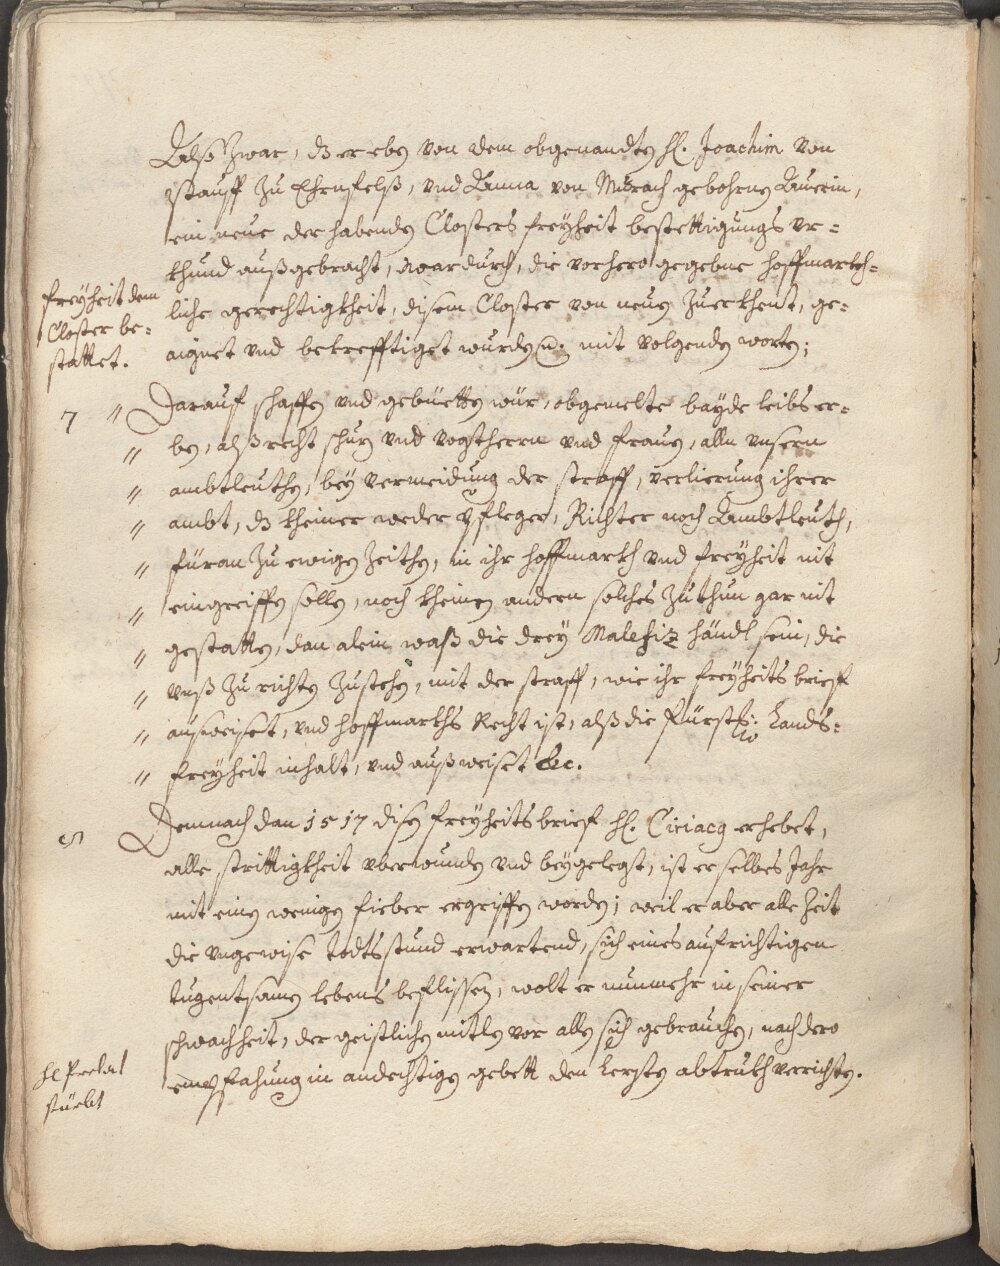 Alß Zwar, dz er eben von dem obgenandten H. Joachim von
Stauff zu Ehrnfelß, vnd Anna von Murach gebohrne Auerin,
ein neue der habenden Closters freyheit bestettigungs vr=
khund außgebracht, wardurch, die vorhero gegebne hoffmarkh=
liche gerechtigkheit, disem Closter von neuen zuerkhent, ge=
aignet vnd bekrefftiget wurden mit volgenden worten;
freyheit dem
Closter be=
stattet.
7 " Darauf schaffen vnd gebüetten wür, obgemelte bayde leibs er=
" ben, alß recht schuz vnd vogtherrn vnd frauen, allen vnsern
" ambtleuthen, bey vermeidung der straff, verlierung ihrer
" ambt, dz kheiner weder Pfleger, Richter noch Ambtleuth,
" füran zu ewigen Zeithen, in ihr hoffmarkh vnd freyheit nit
" eingreiffen sollen, noch kheinen andern solches zuthun gar nit
" gestatten, dan alein waß die drey Malefiz händl sein, die
" vnß zu richten zustehen, mit der straff, wie ihr freyheits brieff
" auswaiset, vnd hoffmarkhs Recht ist, alß die Fürstl: Lands=
" freyheit inhalt, vnd außweiset &c.
8 Demnach dan 1517 disen freyheits brief H. Ciriacg erhebet,
alle strittigkheit vberwunden vnd beygelegt, ist er selbes Jahr
mit einen wenigen fieber ergriffen worden; weil er aber alle Zeit
die vngewise todtsstund erwartend, sich eines aufrichtigen
tugentsamen lebens beflissen, wolt er nunmehr in seiner
schwachheit, der geistlichen mitlen vor allen sich gebrauchen, nach dero
empfahung in andechtigen gebett den lersten abtrukh verrichten.
H Prelat
stürbt